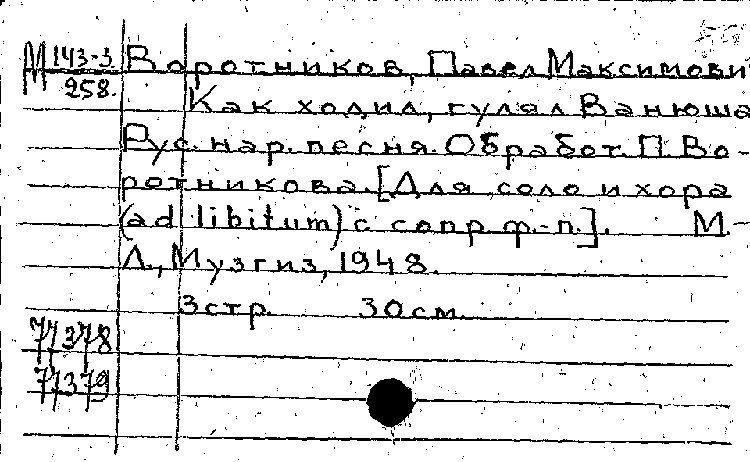 М 143-3
258.
Воротников, Павел Максимови
Как ходил, гулял Ванюша
Рус. нар. песня. Обработ. П. Во-
ротникова. [Для соло и хора
(ad libitum) с сопр. ф.-п.]. М.-
Л., Музгиз, 1948.
3 стр. 30 см.
77378
77379